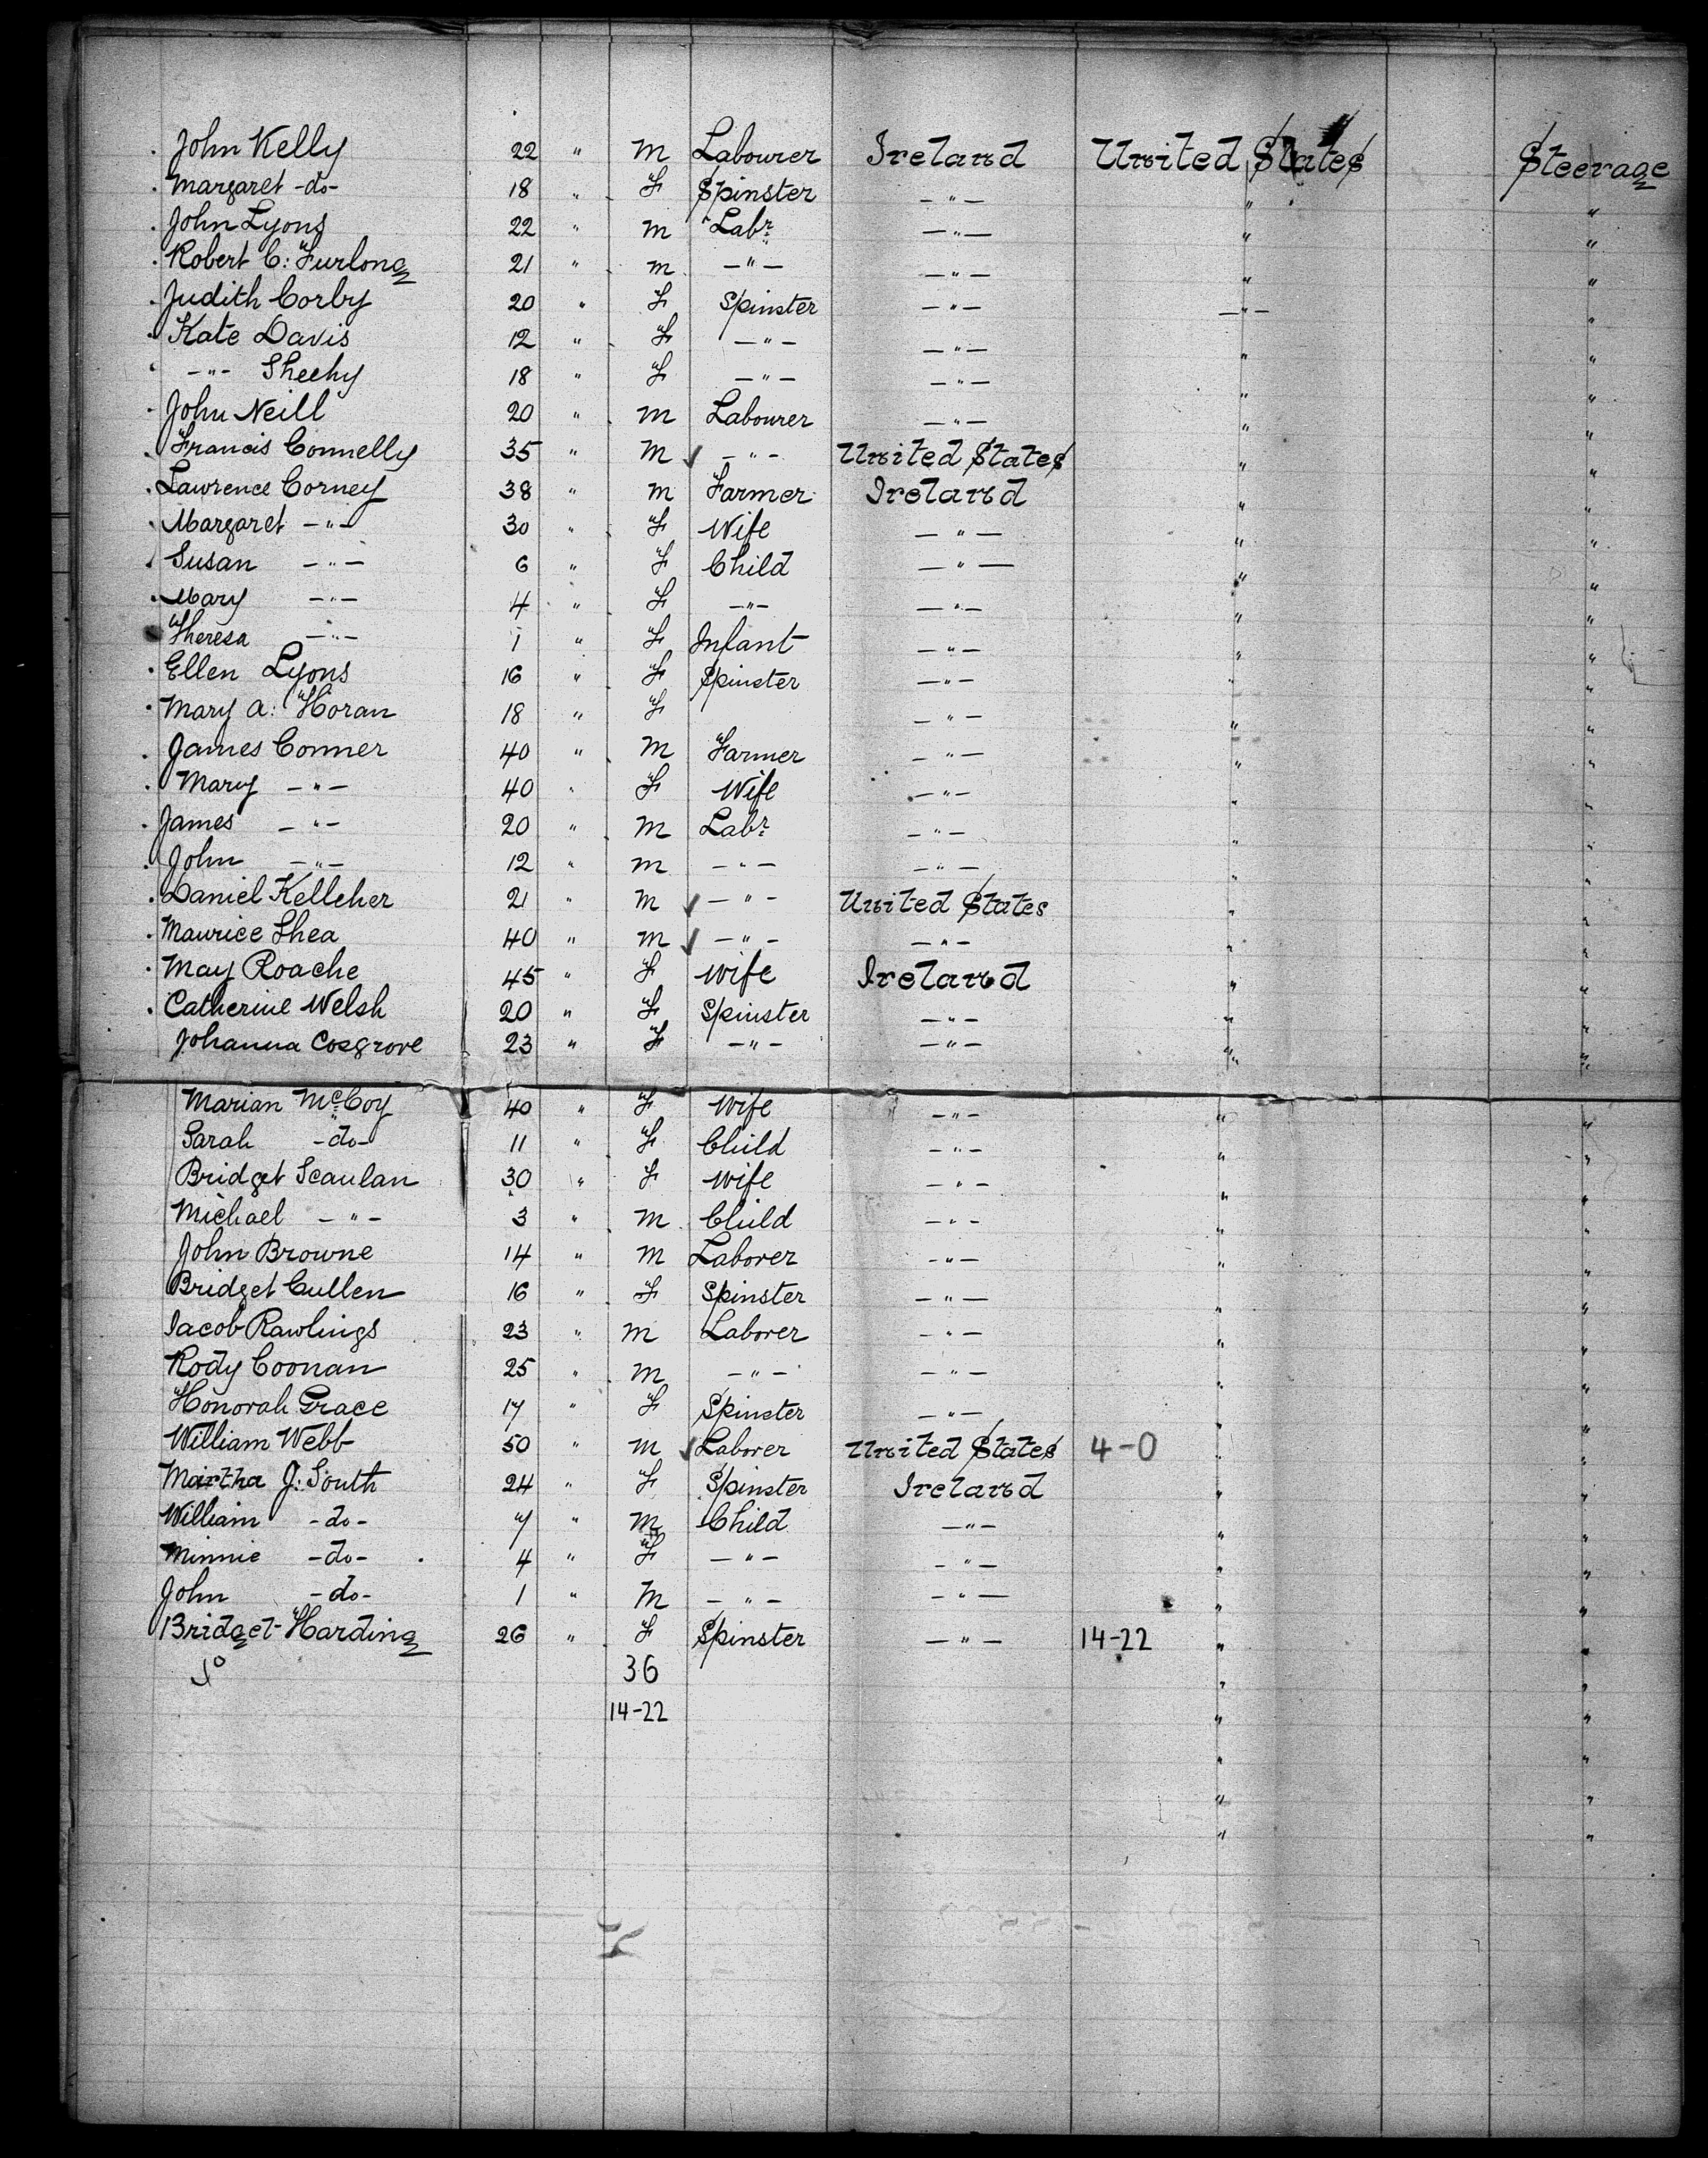 John Kelly 22 " M Labourer Ireland United States Steerage
Margaret -do- 18 " F Spinster -"- " "
John Lyons 22 " M Labr -"- " "
Robert C: Furlong 21 " M -"- -"- " "
Judith Corby 20 " F Spinster -"- -"- "
Kate Davis 12 " F -"- -"- " "
-"- Sheehy 18 " F -"- -"- " "
John Neill 20 " M Labourer -"- " "
Francis Connelly 35 " M ✓ -"- United States " "
Lawrence Corney 38 " M Farmer Ireland " "
Margaret -"- 30 " F Wife -"- " "
Susan -"- 6 " F Child -"- " "
Mary -"- 4 " F -"- -"- " "
Theresa -"- 1 " F Infant -"- " "
Ellen Lyons 16 " F Spinster -"- " "
Mary A: Horan 18 " F -"- " "
James Conner 40 " M Farmer "- " "
Mary -"- 40 " F Wife -"- " "
James -"- 20 " M Labr -"- " "
John -"- 12 " M -"- -"- " "
Daniel Kelleher 21 " M ✓ -"- United States " "
Maurice Shea 40 " M ✓ -"- -"- " "
May Roache 45 " F Wife Ireland " "
Catherine Welsh 20 " F Spinster -"- " "
Johanna Cosgrove 23 " F -"- -"- " "
Marian McCoy 40 " F Wife -"- " "
Sarah -do- 11 " F Child -"- " "
Bridget Scanlan 30 " F Wife -"- " "
Michael -"- 3 " M Child -"- " "
John Browne 14 " M Laborer -"- " "
Bridget Cullen 16 " F Spinster -"- " "
Jacob Rawlings 23 " M Laborer -"- " "
Rody Coonan 25 " M -"- -"- " "
Honorah Grace 17 " F Spinster -"- " "
William Webb 50 " M ✓ Laborer United States 4-0 " "
Martha J: South 24 " F Spinster Ireland " "
William -do- 7 " M Child -"- " "
Minnie -do- 4 " F -"- -"- " "
John -do- 1 " M -"- -"- " "
Bridget Harding 26 " F Spinster -"- 14-22 " "
36 " "
14-22 " "
" "
" "
" "